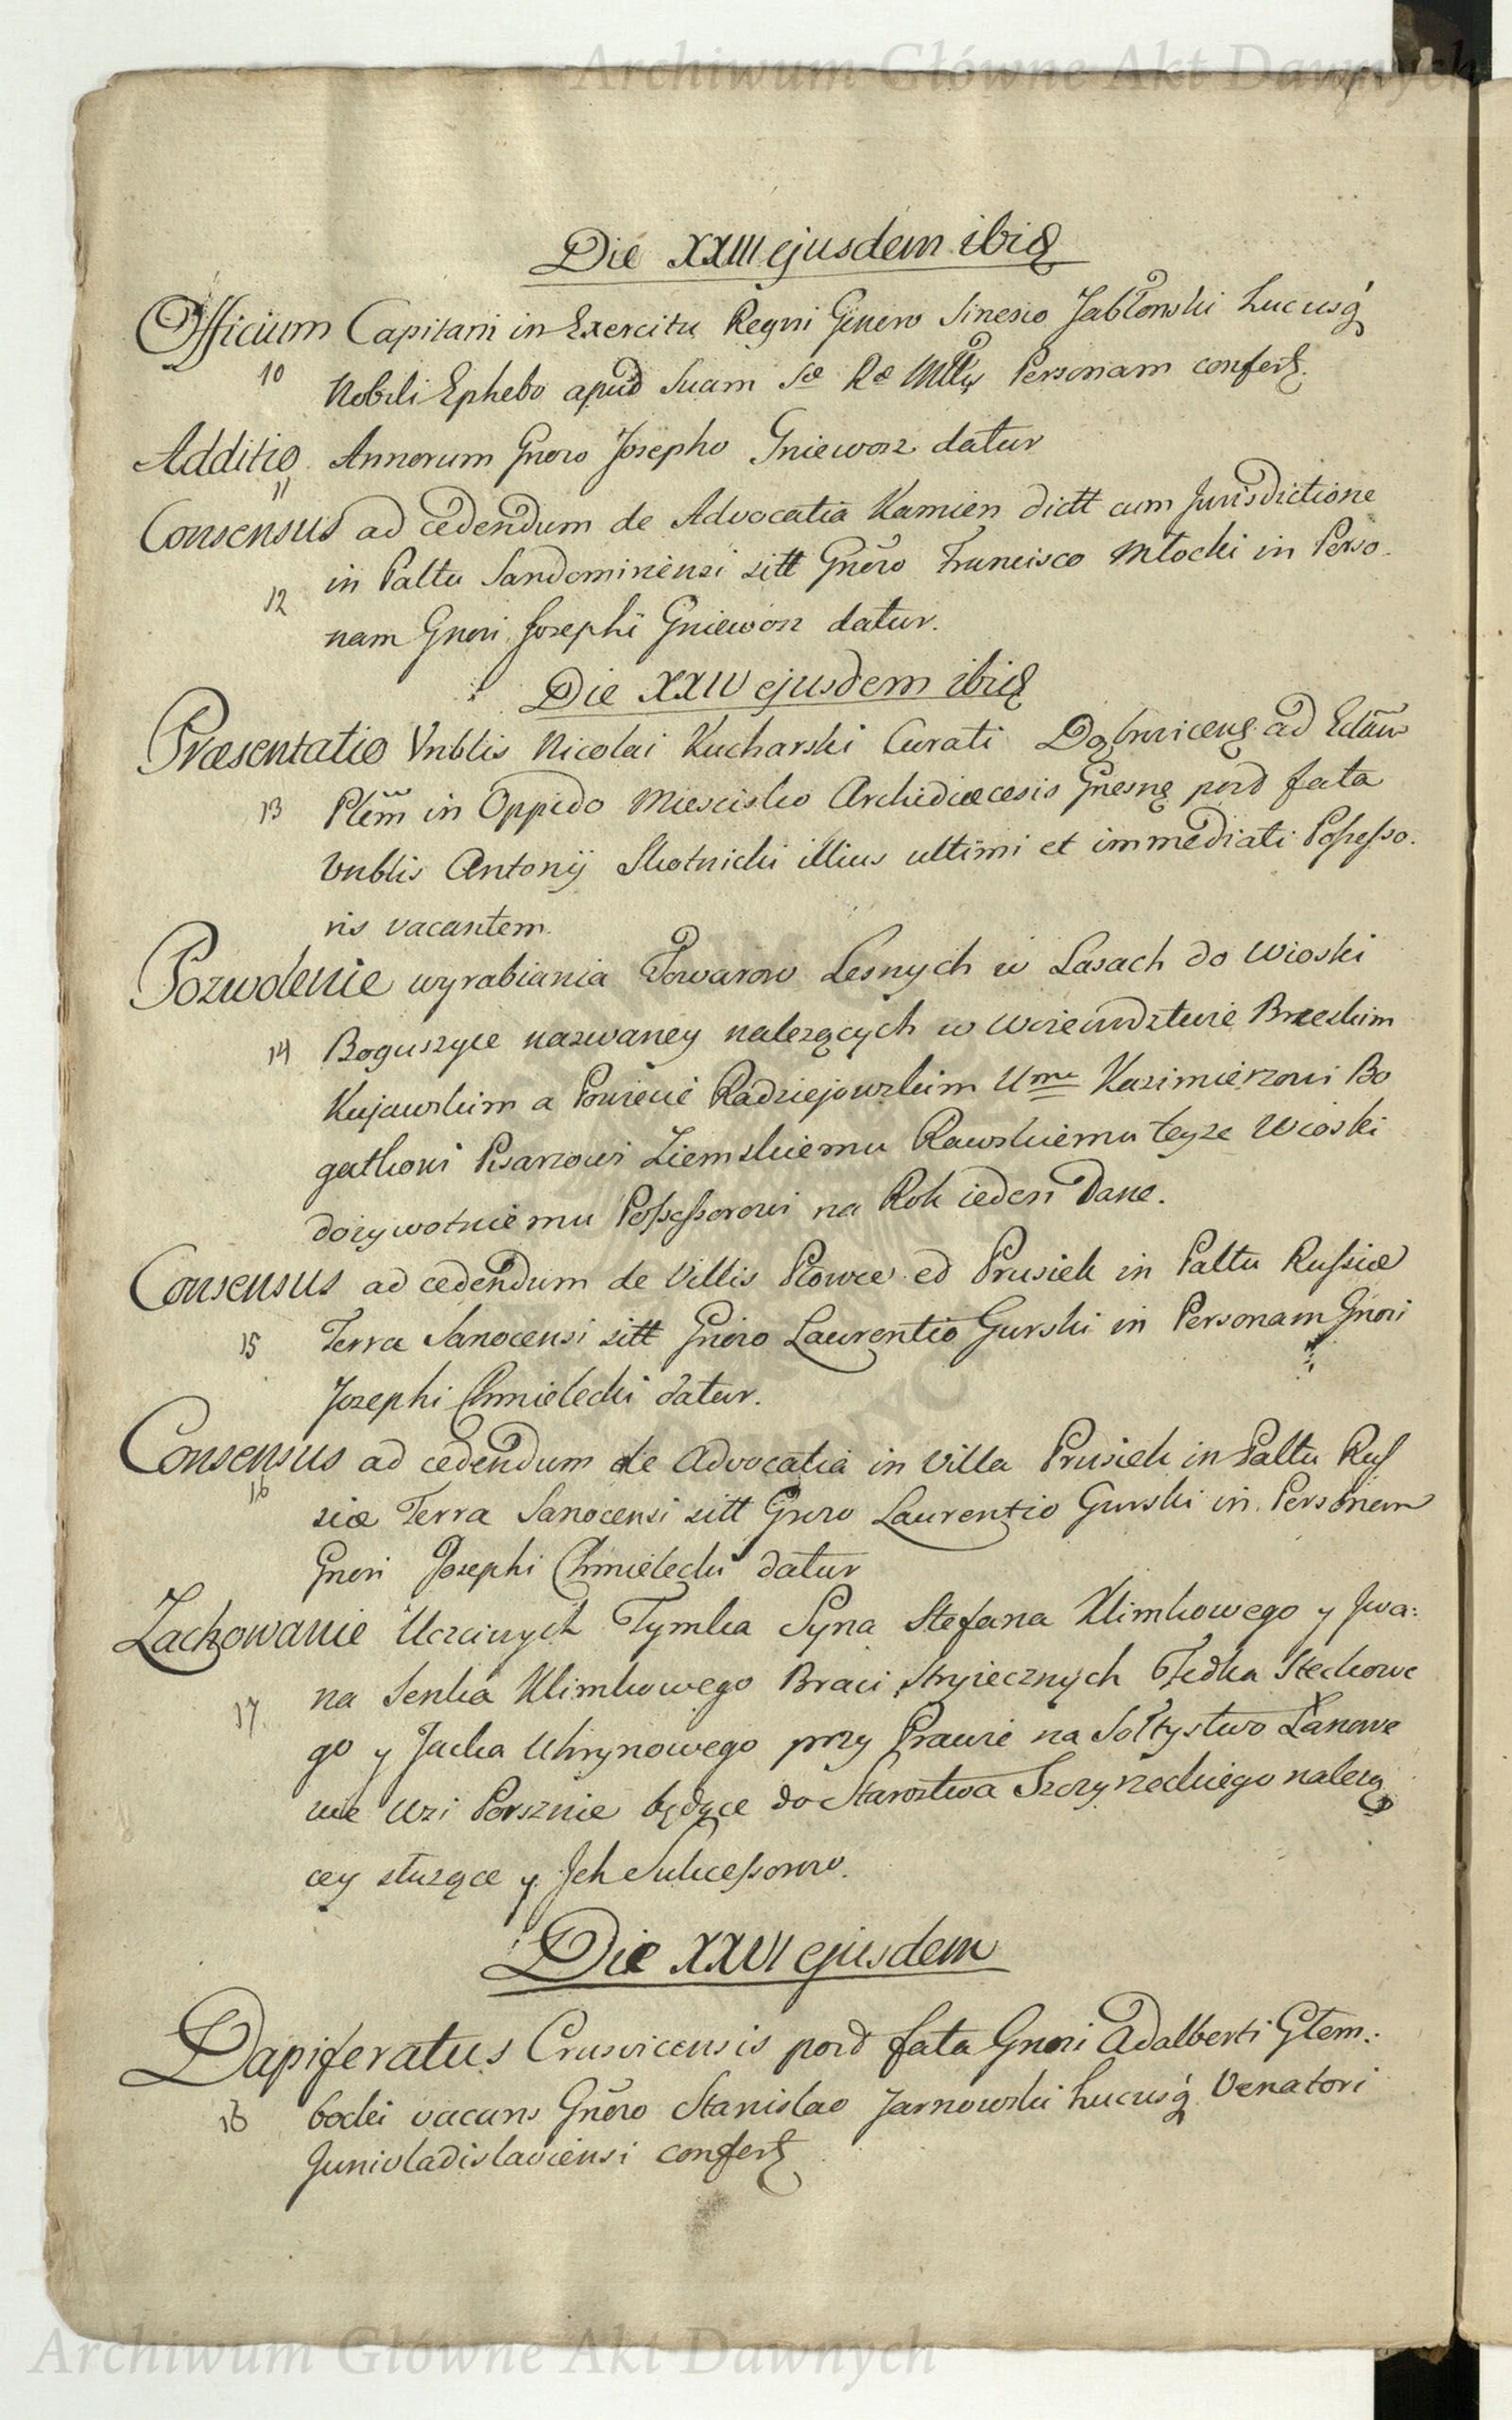 Archiwum Główne Akt Dawnych
Die XXIII ejusdem ibid
Officium Capitani in Exercitu Regni Gnero Sinesio Jabłonski hucusq
10 Nobili Ephebo apud Suam Sæ Ræ Mttis Personam confert.
Additio Annorum Gnero Josepho Gniewosz datur
11
Consensus ad cedendum de Advocatia Kamien dictt cum Jurisdictione
12 in Palttu Sandomiriensi sitt Gnero Francisco Młocki in Perso-
nam Gneri Josephi Gniewosz datur.
Die XXIV ejusdem ibid
Præsentatio Vnblis Nicolai Kucharski Curati Dąbrvicens ad Eclam
13 Plem in Oppido Miescisko Archidiæcesis Gnesns post fata
Vnblis Antonij Skotnicki illius ultimi et immediati Possesso-
ris vacantem.
Pozwolenie wyrabiania Towarow Lesnych w Lasach do Wioski
14 Boguszyce nazwaney nalezących w Woiewodztwie Brzeskim
Kujawskim a Powiecie Radziejowskim Ume Kazimierzowi Bo
gatkowi Pisarzowi Ziemskiemu Rawskiemu teyze Wioski
dozywotniemu Possessorowi na Rok ieden Dane.
Consensus ad cedendum de Villis Płowce ed Prusiek in Palttu Russiæ
15 Terra Sanocensi sitt Gnero Laurentio Gurski in Personam Gneri
Josephi Chmielecki datur.
Consensus ad cedendum de Advocatia in Villa Prusiek in Palttu Rus
16 siæ Terra Sanocensi sitt Gnero Laurentio Gurski in Personam
Gneri Josephi Chmielecki datur
Zachowanie Uczciwych Tymka Syna Stefana Klimkowego y Jwa:
17 na Senka Klimkowego Braci Stryiecznych Fedka Steckowe
go y Jacka Uhrynowego przy Prawie na Sołtystwo Łanowe
we Wsi Porsznie będące do Starostwa Szczyrzeckiego nalezą
cey służące y Jch Sukcessorow.
Die XXVI ejusdem
Dapiferatus Crusvicensis post fata Gneri Adalberti Głem:
18 bocki vacans Gnero Stanislao Jarnowski hucusq Venatori
Junivladislaviensi confert
Archiwum Główne Akt Dawnych